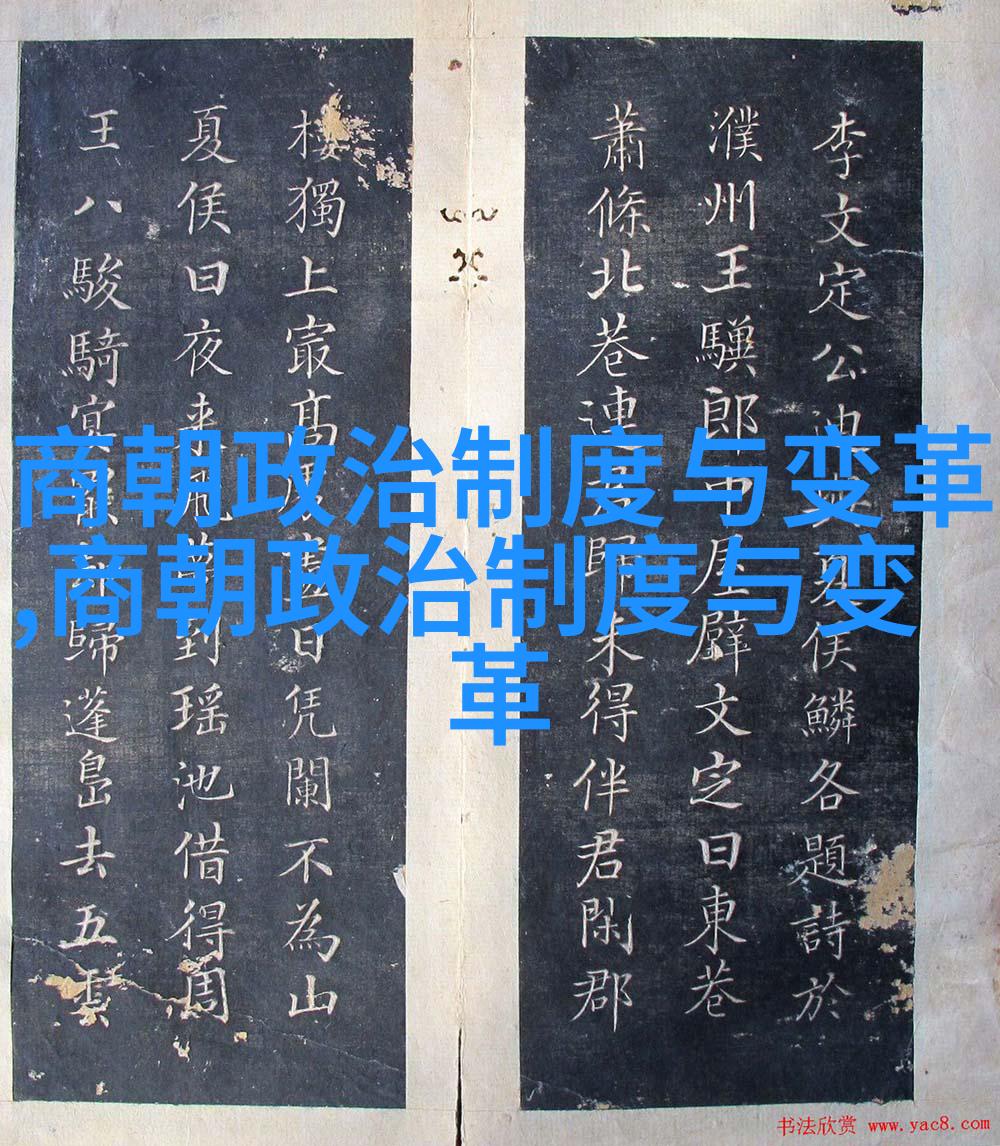 李文定公迪夏侯鱗各題詩於
濮州王郎中屋壁文定曰東巷
蕭條北巷連歸未得伴君閑郡
樓獨上寂高日凭闌不為山
夏侯曰夜来到瑶池借得周
王八駿騎歸蓬島去五雲
商朝政治制度与变革
,商朝政治制度与变
革
书法欣赏 www.yac8.com